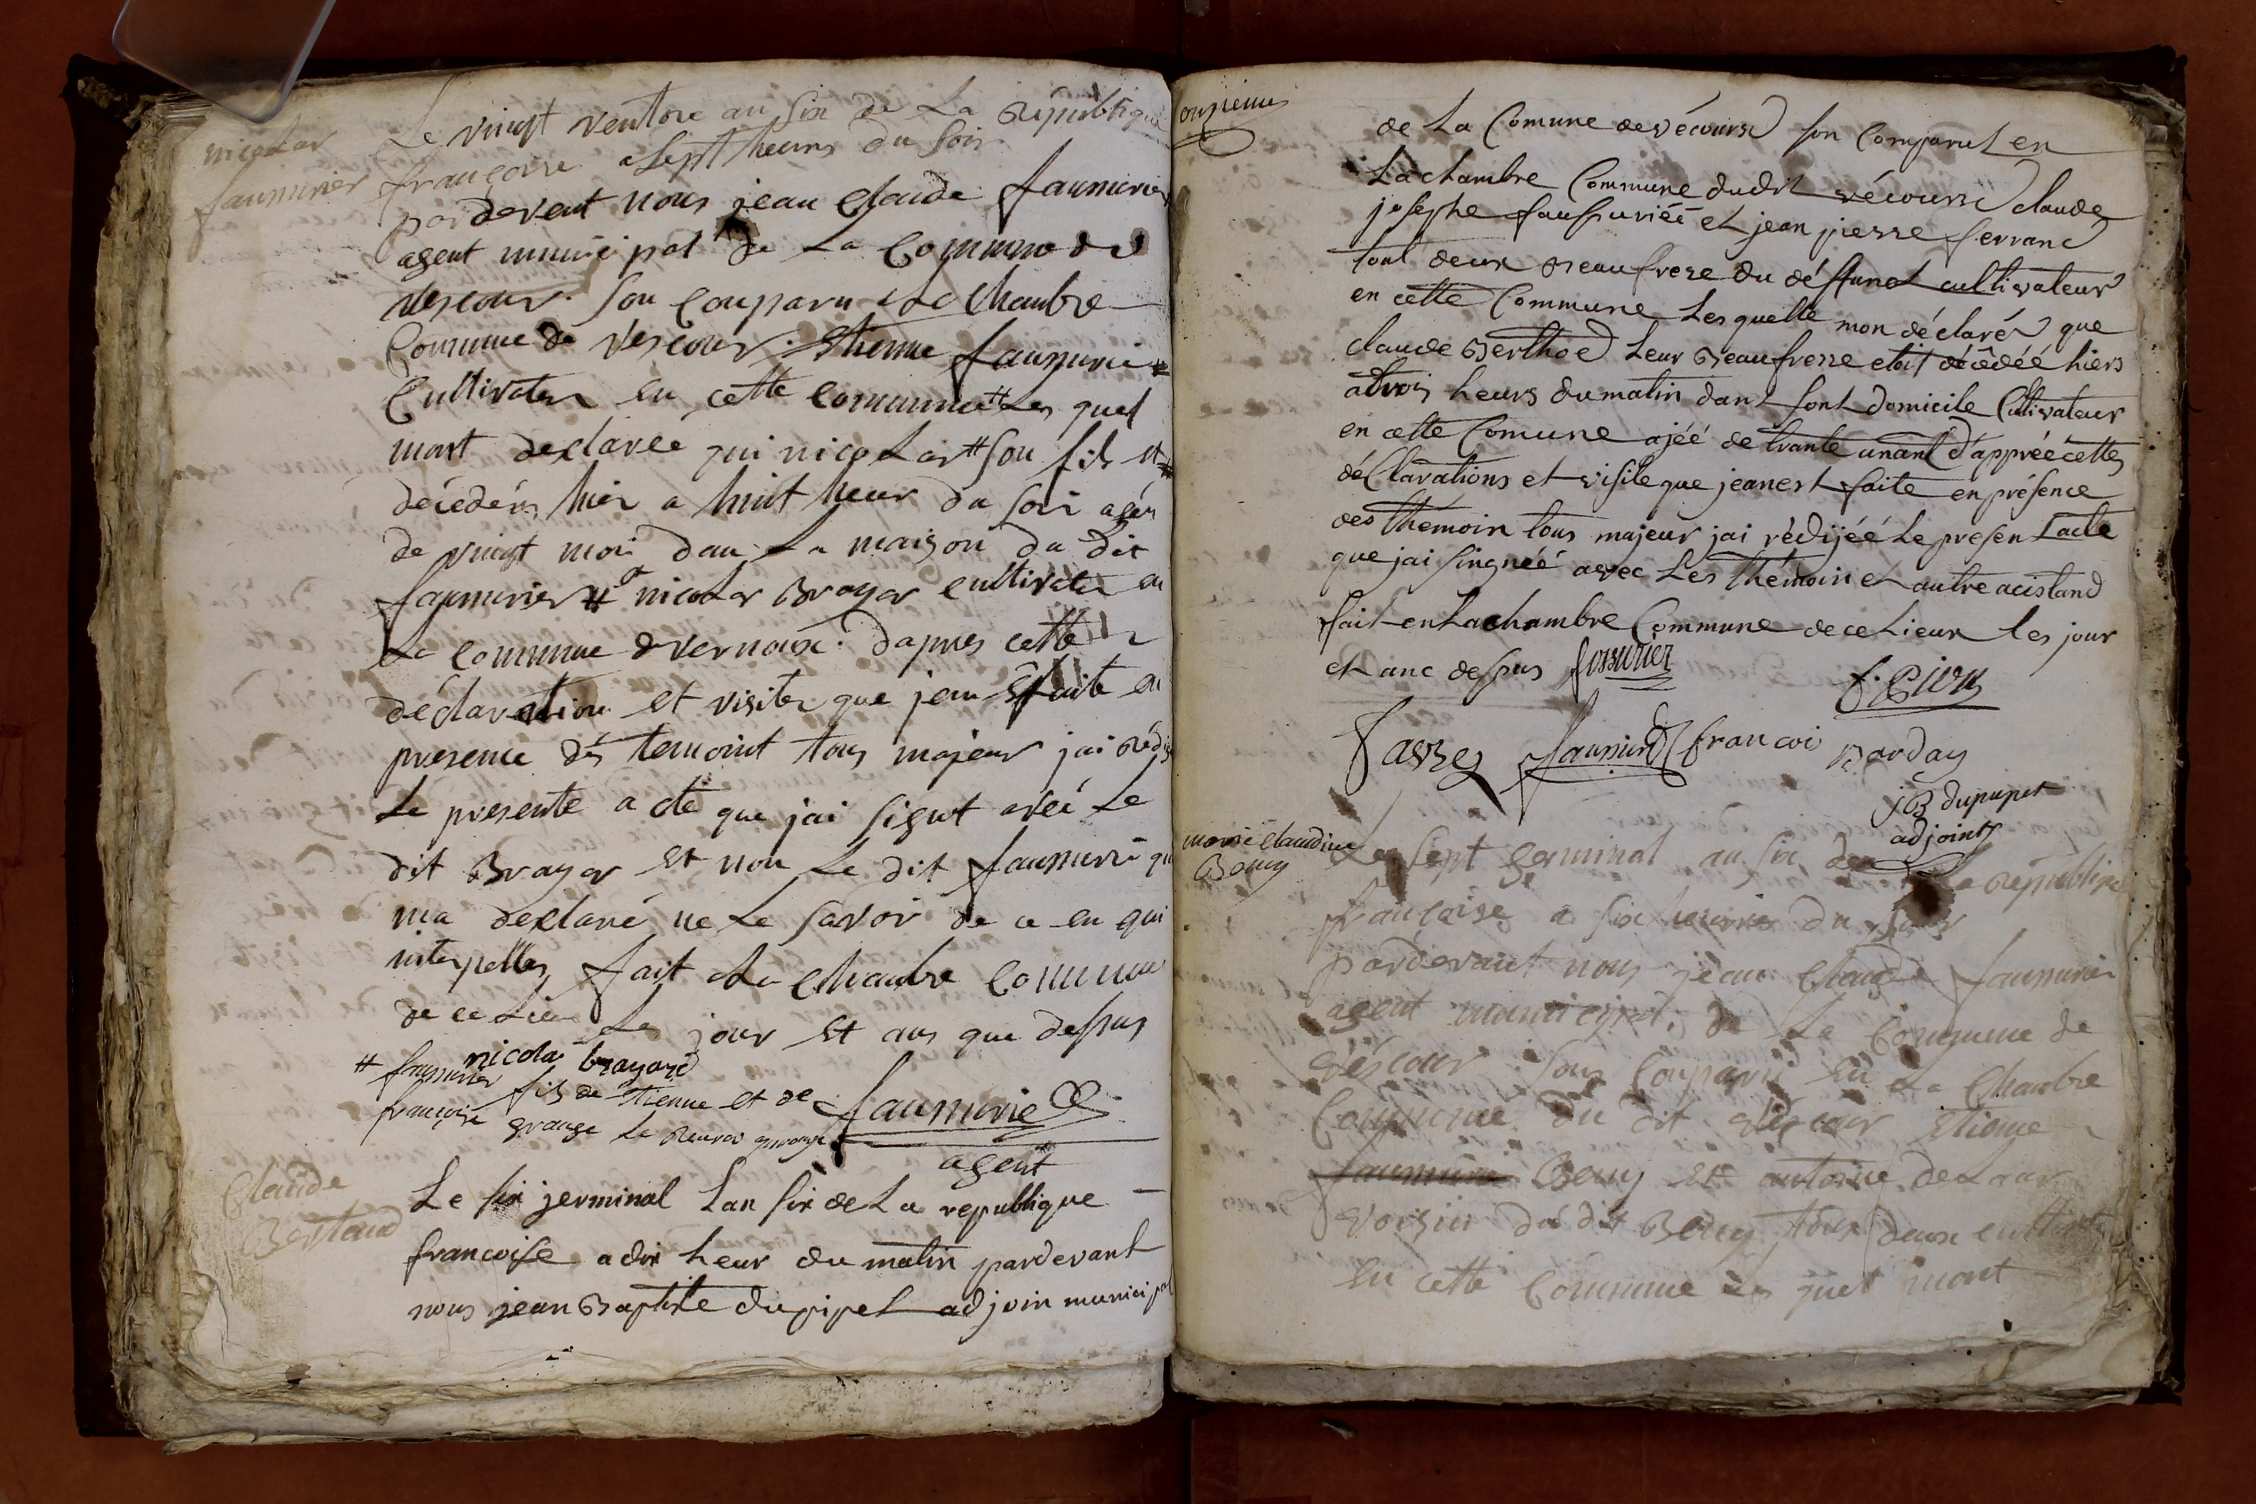 nicolas
faussurier
Le vingt ventose an six de La république
françoise a sept heures du soir
pardevent nous jean claude faussurier
agent municipal de La Commune de
vescour son Comparu a La Chambre
Commune de vescour Etienne faussurie #
Cultivateur en cette Commune # Les quel
mont declareé qui nicolas # son fils et #
décédéz hier a huit heur du soir agéz
de vingt moi dan La maison du dit
faussurier # et nicolas Brayar cultivater en
La Commune de vernoux. dapres cette
déclaration et visites que jean Est faite en
presence dés temoint tous majeur jai rédi
Le presente acte que jai signet avéc Le
dit Brayar et non Le dit faussurié qui
ma declaré ne Le savoir de ce en qui
interpellez fait a La Chambre Commune
de ce Lieu Les jour et ans que dessus
nicolas brayard
# faussurier fils de Etienne et de
françoise grange Le renvoi approuvé
faussurie
agent
Claude
Bertaud
Le six jerminal Lan six de La republique
francoise a dix heur du matin pardevant
nous jean Baptiste dupipet adjoin municipal
onzieme
de La Comune de vécours son Comparut en
La chambre Commune dudit vécours claude
josephe faussuriéé et jean pierre ferrand
tout deux Beaufrere du déffunct cultivateur
en cette Commune Lesquelle mon déclaréz que
claude Berthod Leur Beaufrerre etoit décédéé hiers
a trois heurs du matin dant sont domicile Cultivateur
en cette Comune ajéé de trante un ant d'appréé cettes
déClarations et visite que jeanest faite en présence
des thémoin tous majeur jai rédijéé Le presen tacte
que jai singnéé avec Les thémoin et autre acistand
fait en La chambre Commune de ce Lieux les jour
et anc desus fossurier
faussurier francoi Parday
jB dupipet
adjoint
marie claudine
Bouy
Les sept Germinal an six de La république
françaisse a six heures du soir
pardevant nous jean Claude faussurier
agent municipal de La Commune de
véscour sont Comparu en La Chambre
Commune du dit vescour Etienne
faussurie Bouy et antoine deLaar
voisin du dit Bouy tous deux
en cette Commune Les quet mont